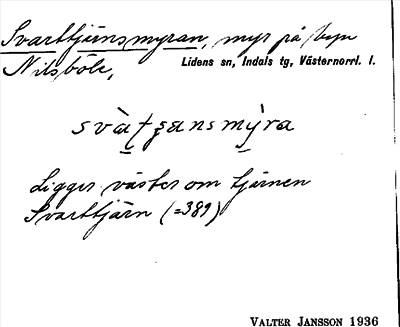 Svarttjärnsmyran, myr på byn
Nilsböle, Lidens sn, Indals tg, Västernorrl. l.
svàtʒansmy̆ra
Ligger väster om tjärnen
Svarttjärn (=389)
VALTER JANSSON 1936